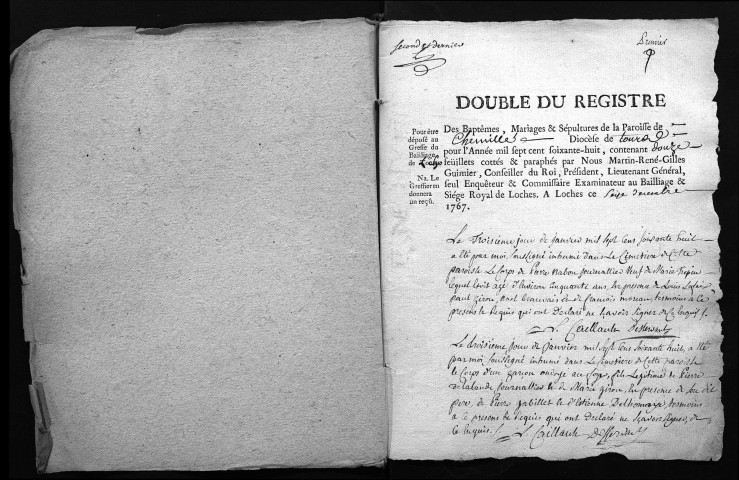 second et dernier
Premier
DOUBLE DU REGISTRE
Pour être
déposé au
Greffe du
Bailliage
de Loches
Na. Le
Greffier m'en
donnera
un reçu.
Des Baptêmes, Mariages & Sépultures de la Paroisse de
Chemillé Diocèse de tours
pour l'Année mil sept cent soixante-huit, contenant douze
feüillets cottés & paraphés par Nous Martin-René-Gilles
Guimier, Conseiller du Roi, Président, Lieutenant Général,
seul Enquêteur & Commissaire Examinateur au Bailliage &
Siége Royal de Loches. A Loches ce seize decembre
1767.
Le Troisieme jour de janvier mil sept cens soixante huit
a été par moi soussigné inhumé dans le Cimetiere de Cette
paroisse Le Corps de Pierre journallier veuf de Marie
lequel étoit agé d'Environ Cinquante ans, en presence de Louis
paul giron, beauvais et de francois moreau tesmoins à ce
presens et requis qui ont declaré ne sçavoir signer de ce enquis
Le troisieme jour de janvier mil sept Cens soixante huit, a été
par moi soussigné inhumé dans le Cimetiere de Cette paroisse
le Corps d'un garçon fils Legitime de Pierre
delalande journallier et de Marie giron, en presence de son dit
pere, de Pierre gabillet et d'Etienne tesmoins
a ce presens et requis qui ont declaré ne sçavoir signer, de
ce enquis